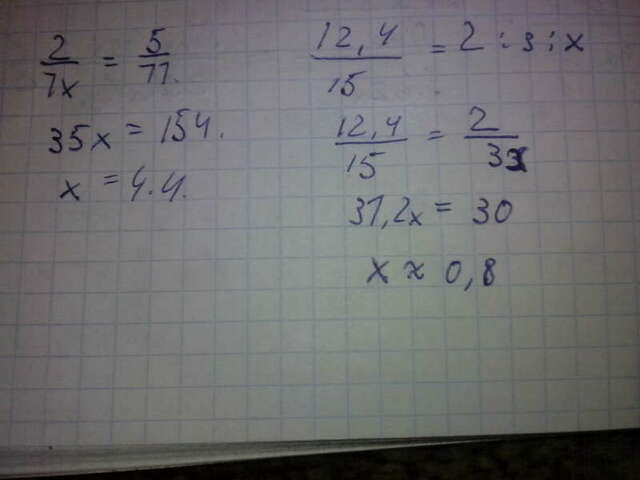 2/7x = 5/77.
35x = 154.
x = 4.4.
12,4/15 = 2 : 3 : x
12,4/15 = 2/3x
37,2x = 30
x ≈ 0,8